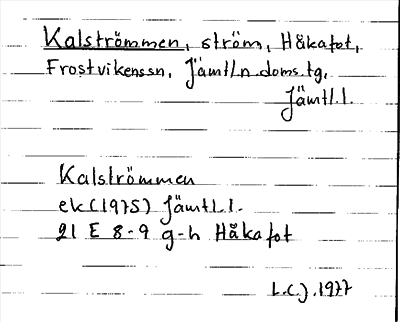 Kalströmmen, ström, Håkafot,
Frostvikenssn, Jämtl.n.doms.tg,
Jämtl.l.
Kalströmmen
ek(1975) Jämtl.l.
21 E 8-9 g-h Håkafot
L.C.J. 1977